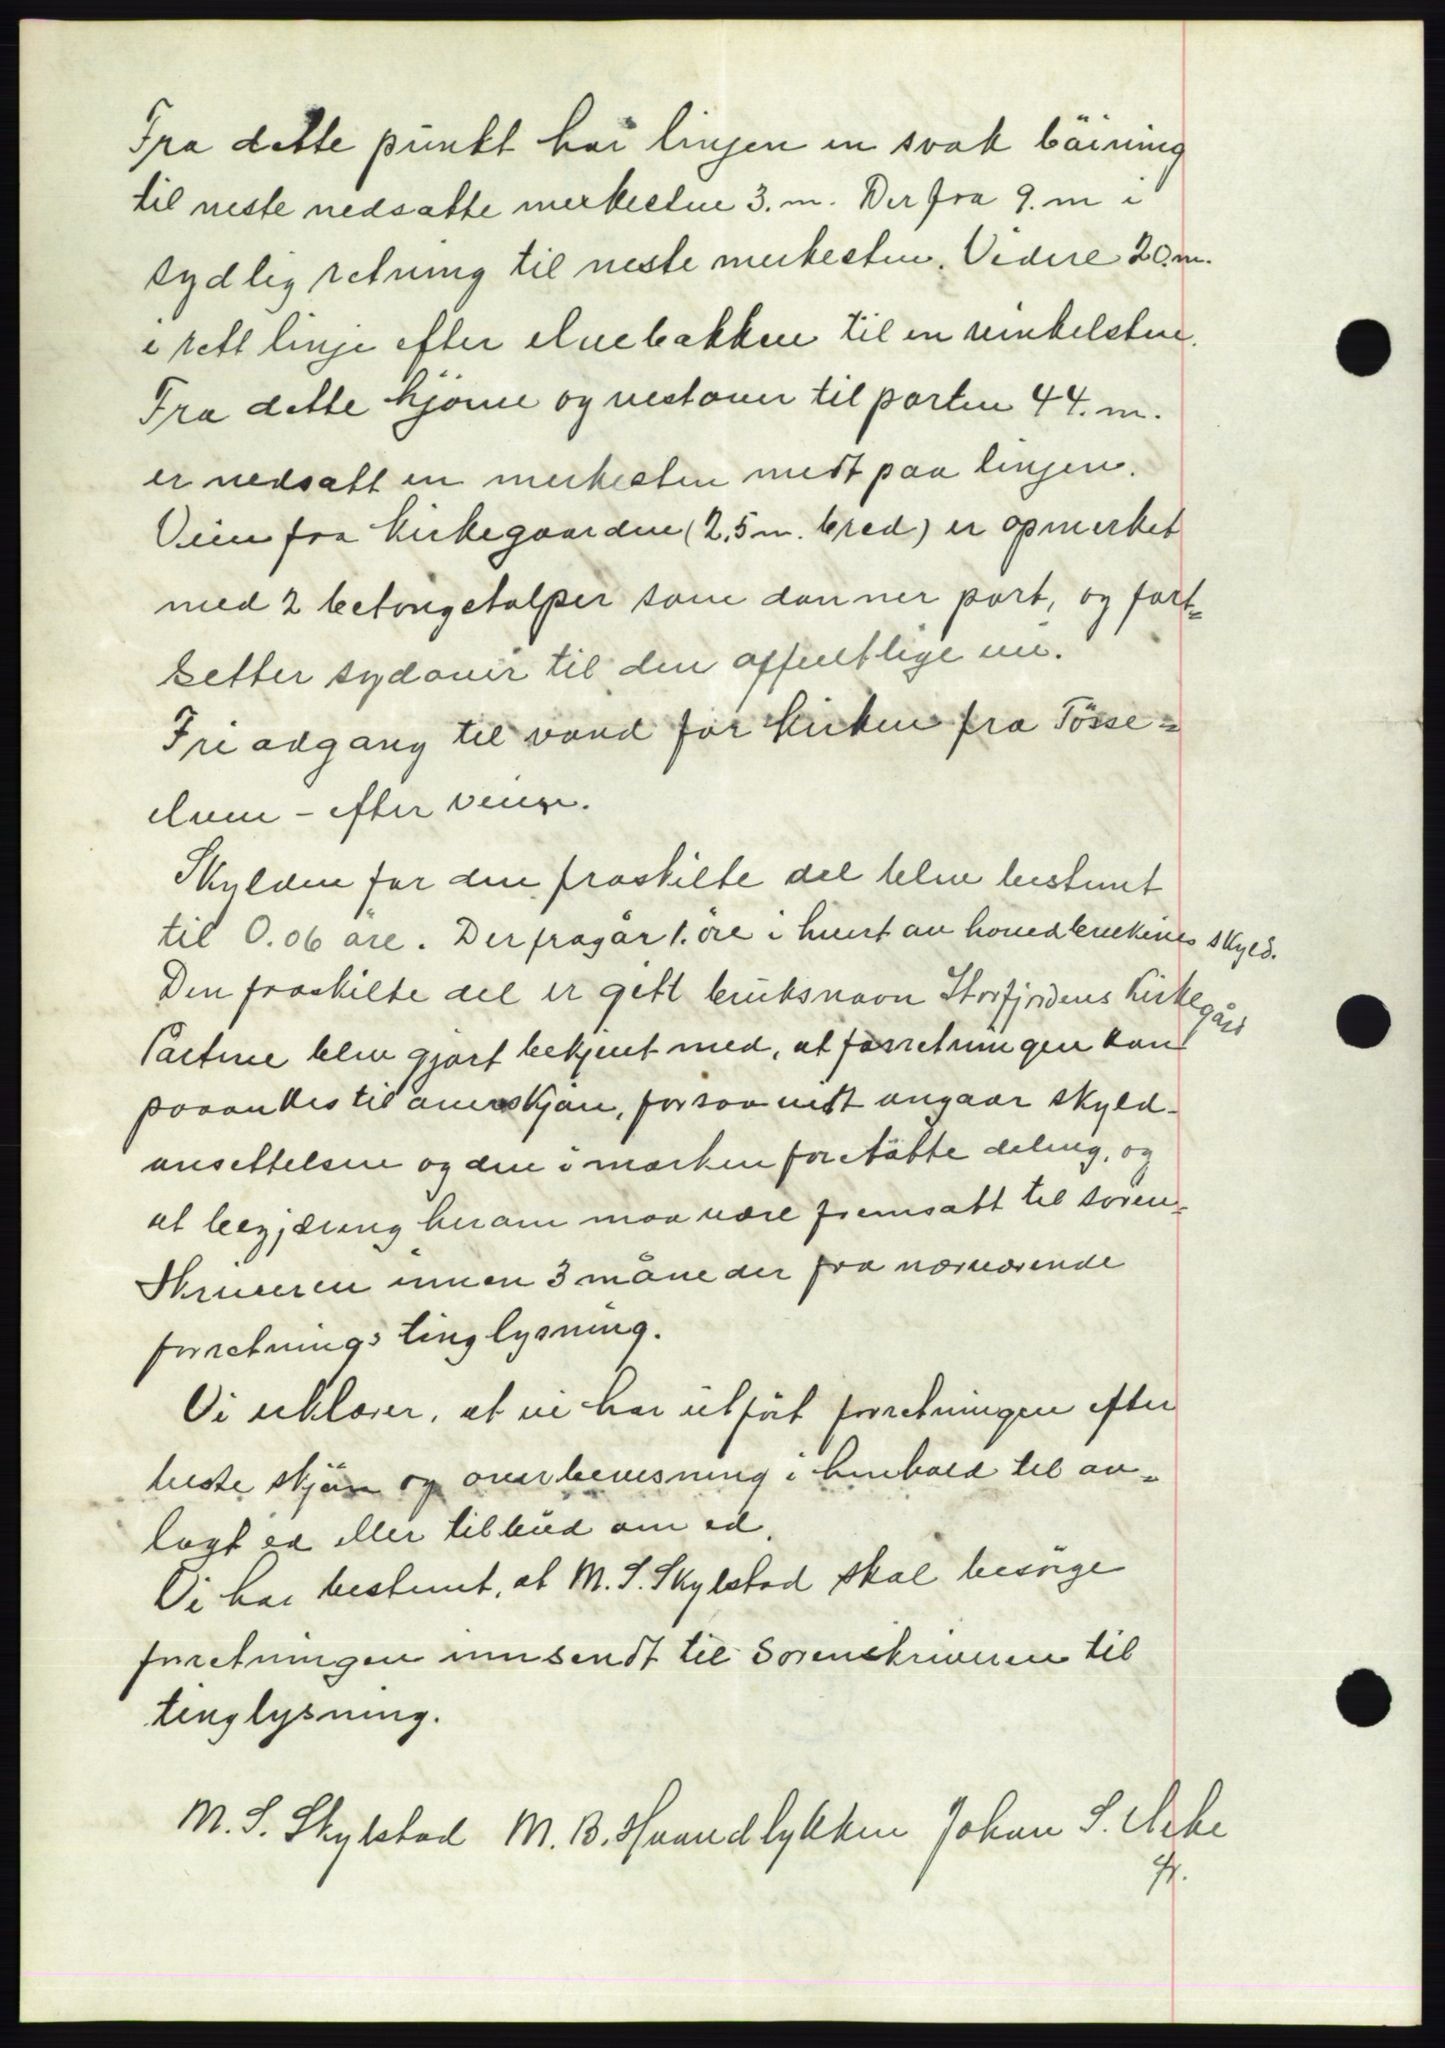 Fra dette punkt har linjen en svak böining
til neste nedsatte merkesten 3. m. Der fra 9. m i
sydlig retning til neste merkesten. Videre 20.m.
i rett linje efter elvebakken til en vinkelsten.
Fra dette hjörne og vestover til porten 44. m.
er nedsatt en merkesten midt paa linjen.
Veien fra kirkegaarden (2,5 m. bred) er opmerket
med 2 betongstolper som danner port, og fort=
setter sydover til den offentlige vei.
Fri adgang til vand for kirken fra Tösse=
elven - efter veien.
Skylden for den fraskilte del blev bestemt
til 0.06 öre. Der fragår 1. öre i hvert av hovedbrukenes skyld.
Den fraskilte del er gitt bruksnavn Storfjordens Kirkegård
Partene blev gjort bekjent med, at forretningen kan
paaankes til overskjön, forsaavidt angaar skyld-
ansettelsen og den i marken foretatte deling, og
at begjæring herom maa være fremsatt til soren=
skriveren innen 3 måneder fra nærværende
forretnings tinglysning.
Vi erklærer, at vi har utfört forretningen efter
beste skjön og overbevisning i henhold til av=
lagt ed eller tilbud om ed.
Vi har bestemt, at M. S. Skylstad skal besörge
forretningen innsendt til Sorenskriveren til
tinglysning.
M. S. Skylstad M. B. Haandlykken Johan S. Uri